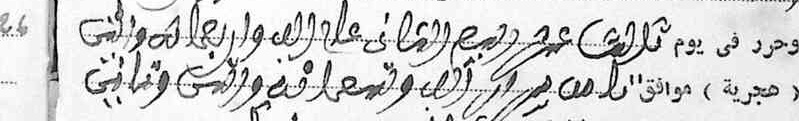 وحرر في يوم ثالث عشر ربيع الثاني عام الف واربعمائة واثنين
( هجرية ) موافق " ثامن فبراير ألف وتسعمائة واثنين وثمانين